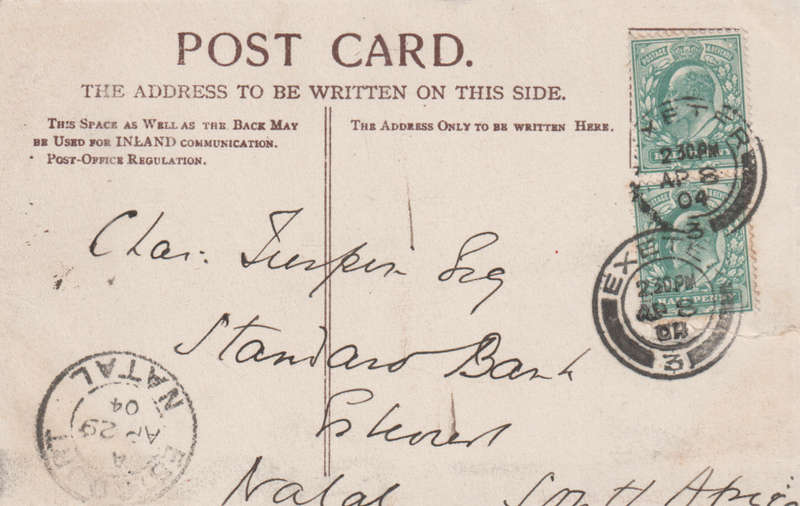 POST CARD.
THE ADDRESS TO BE WRITTEN ON THIS SIDE.
THIS SPACE AS WELL AS THE BACK MAY
BE USED FOR INLAND COMMUNICATION.
POST-OFFICE REGULATION.
THE ADDRESS ONLY TO BE WRITTEN HERE.
EXETER
2.30PM
AP 8
04
3
EXETER
2.30PM
AP 8
04
3
HALF PENNY
Chas. Turpin Esq
Standard Bank
Estcourt
Natal South Africa
NATAL
AP 29
04
A